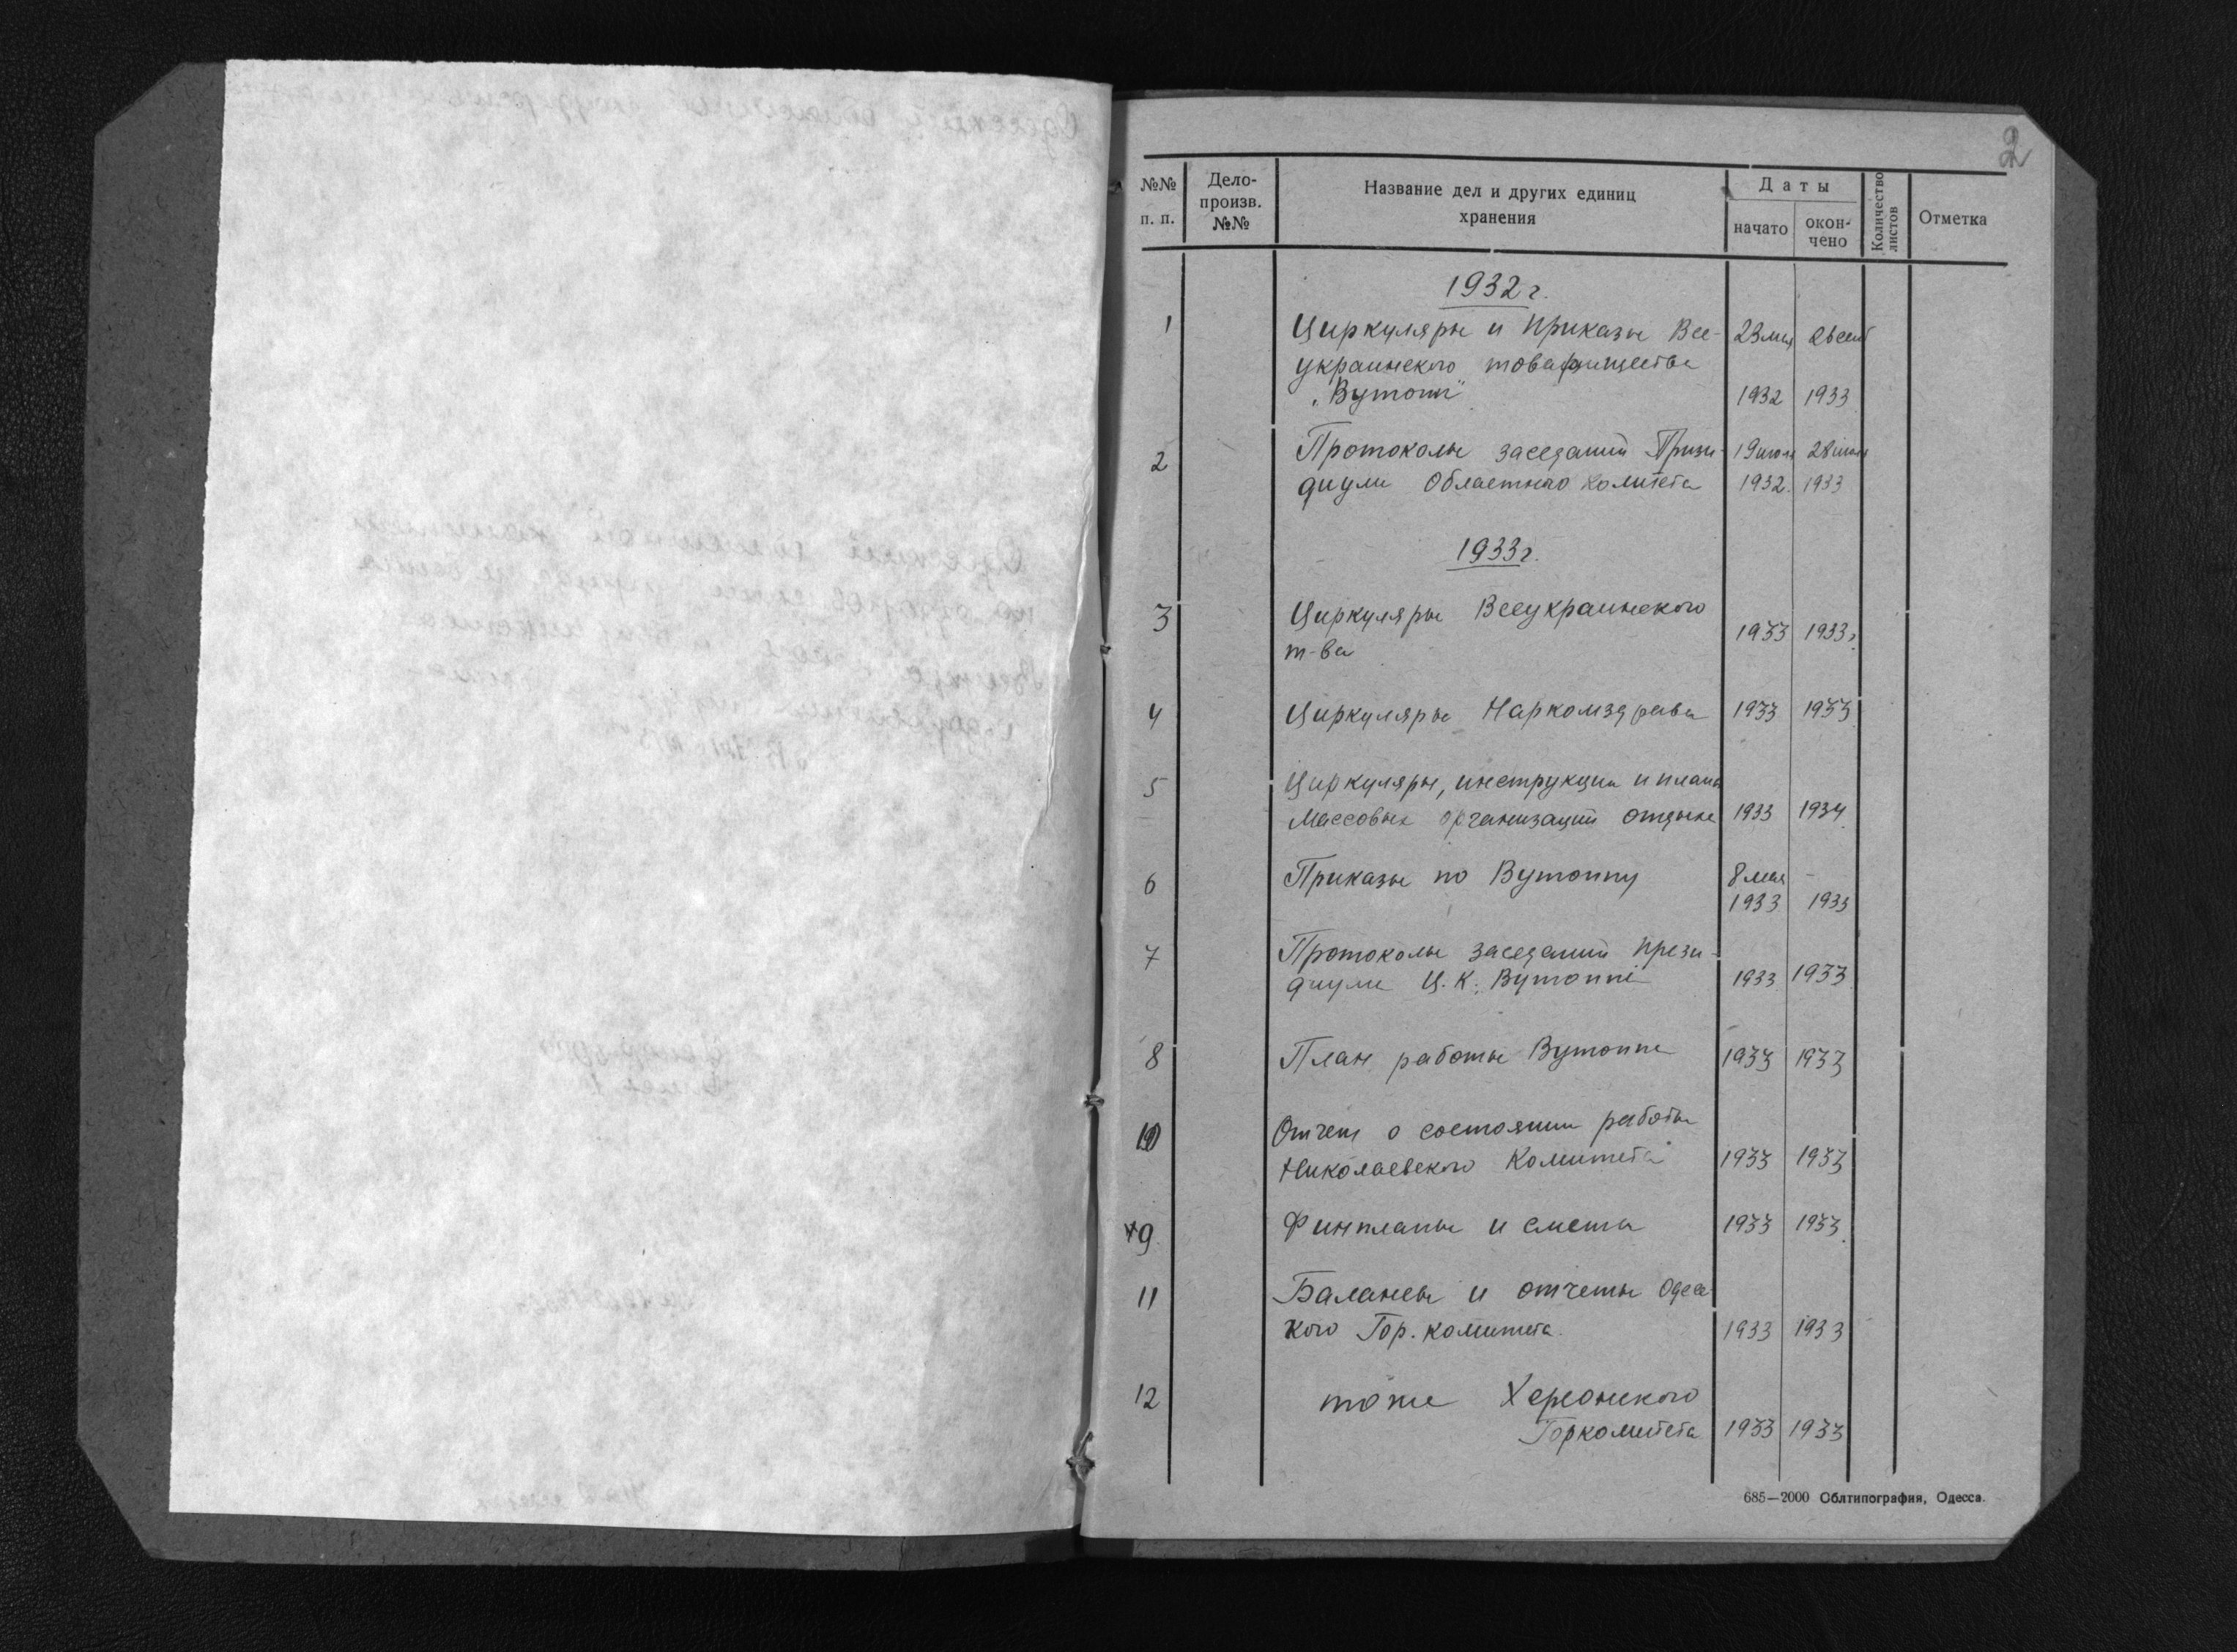 2
№№ п. п.
Дело-
произв.
№№
Название дел и других единиц
хранения
Даты
начато
окон-
чено
Количество
листов
Отметка
1932 г.
1 Циркуляры и приказы Все- 23 мая
украинского товарищества
„Вутопп" 1932 1933
2 Протоколы заседаний Прези-
диума Областного комитета 1932. 1933
1933 г.
3 Циркуляры Всеукраинского
т-ва 1933 1933 г.
4 Циркуляры Наркомздрава 1933 1933
5 Циркуляры, инструкции и планы
массовых организаций отдыха 1933 1934
6 Приказы по Вутоппу 8 мая -
1933 1933
7 Протоколы заседаний прези-
диума Ц.К. Вутоппа 1933 1933
8 План работы Вутоппа 1933 1933
10 Отчет о состоянии работы
Николаевского Комитета 1933 1933
9 Финпланы и смета 1933 1933
11 Балансы и отчеты Одесс
кого Гор. комитета. 1933 1933
12 тоже Херсонского
Горкомитета 1933 1933
685—2000 Облтипография, Одесса.